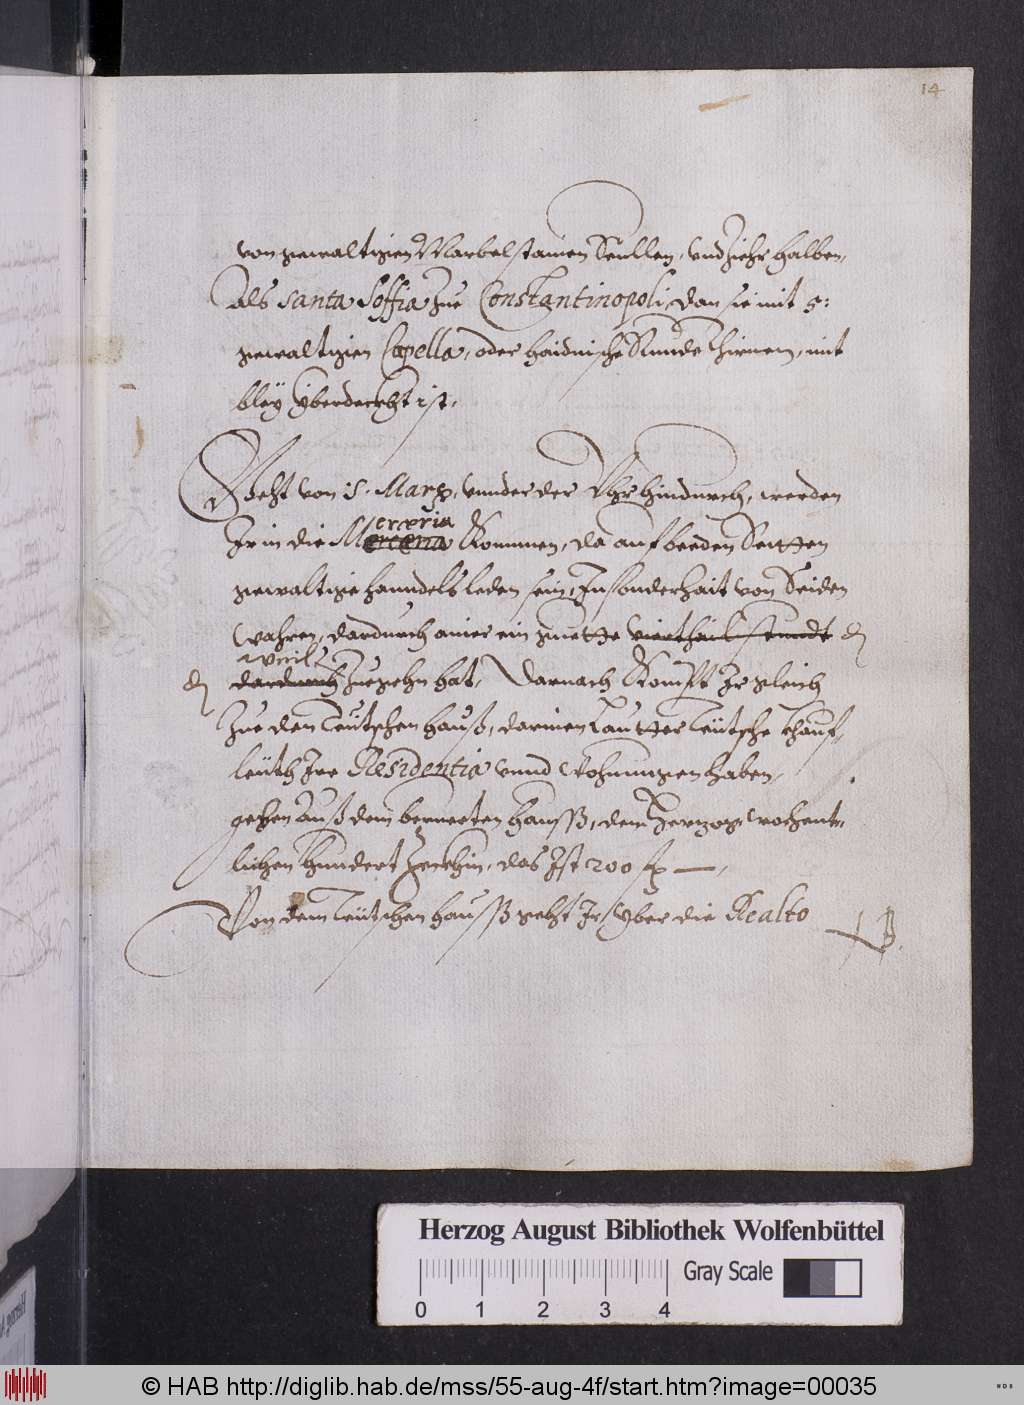 14
von gewaltigen Marbelstainen Seüllen, vnd ziehr halben,
als Santa Soffia zue Constantinopoli, dan sie mit 5:
gewaltigen Capella, oder haidnische Runde Thürnen, mit
bleÿ yberdeckht ist.
Geht von S. Marx, vnnder der Vhr hindurch, werden
Ir in die Merceria Kommen, da auf beeden Seitten
gewaltige hanndels leden sein, Insonderhait von Seiden
wahren, dardurch ainer ein guette viertheil stundt
weil
dardurch zuegehn hat, Darnach Kompt Ir gleich
zue dem Teutschen hauß, darinen Lautter Teütsche Khauf-
leüth Ire Residentia vnnd Wohnungen haben,
geben auß dem bemelten hauß, dem Herzog, wochent-
lichen hundert Zeckhin, das Ist 200 fl
Von dem Teütschen hauß geht Ir yber die Realto
Herzog August Bibliothek Wolfenbüttel
0 1 2 3 4
Gray Scale
© HAB http://diglib.hab.de/mss/55-aug-4f/start.htm?image=00035